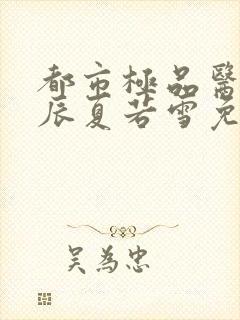 都市極品醫
辰夏若雪免
吳為忠